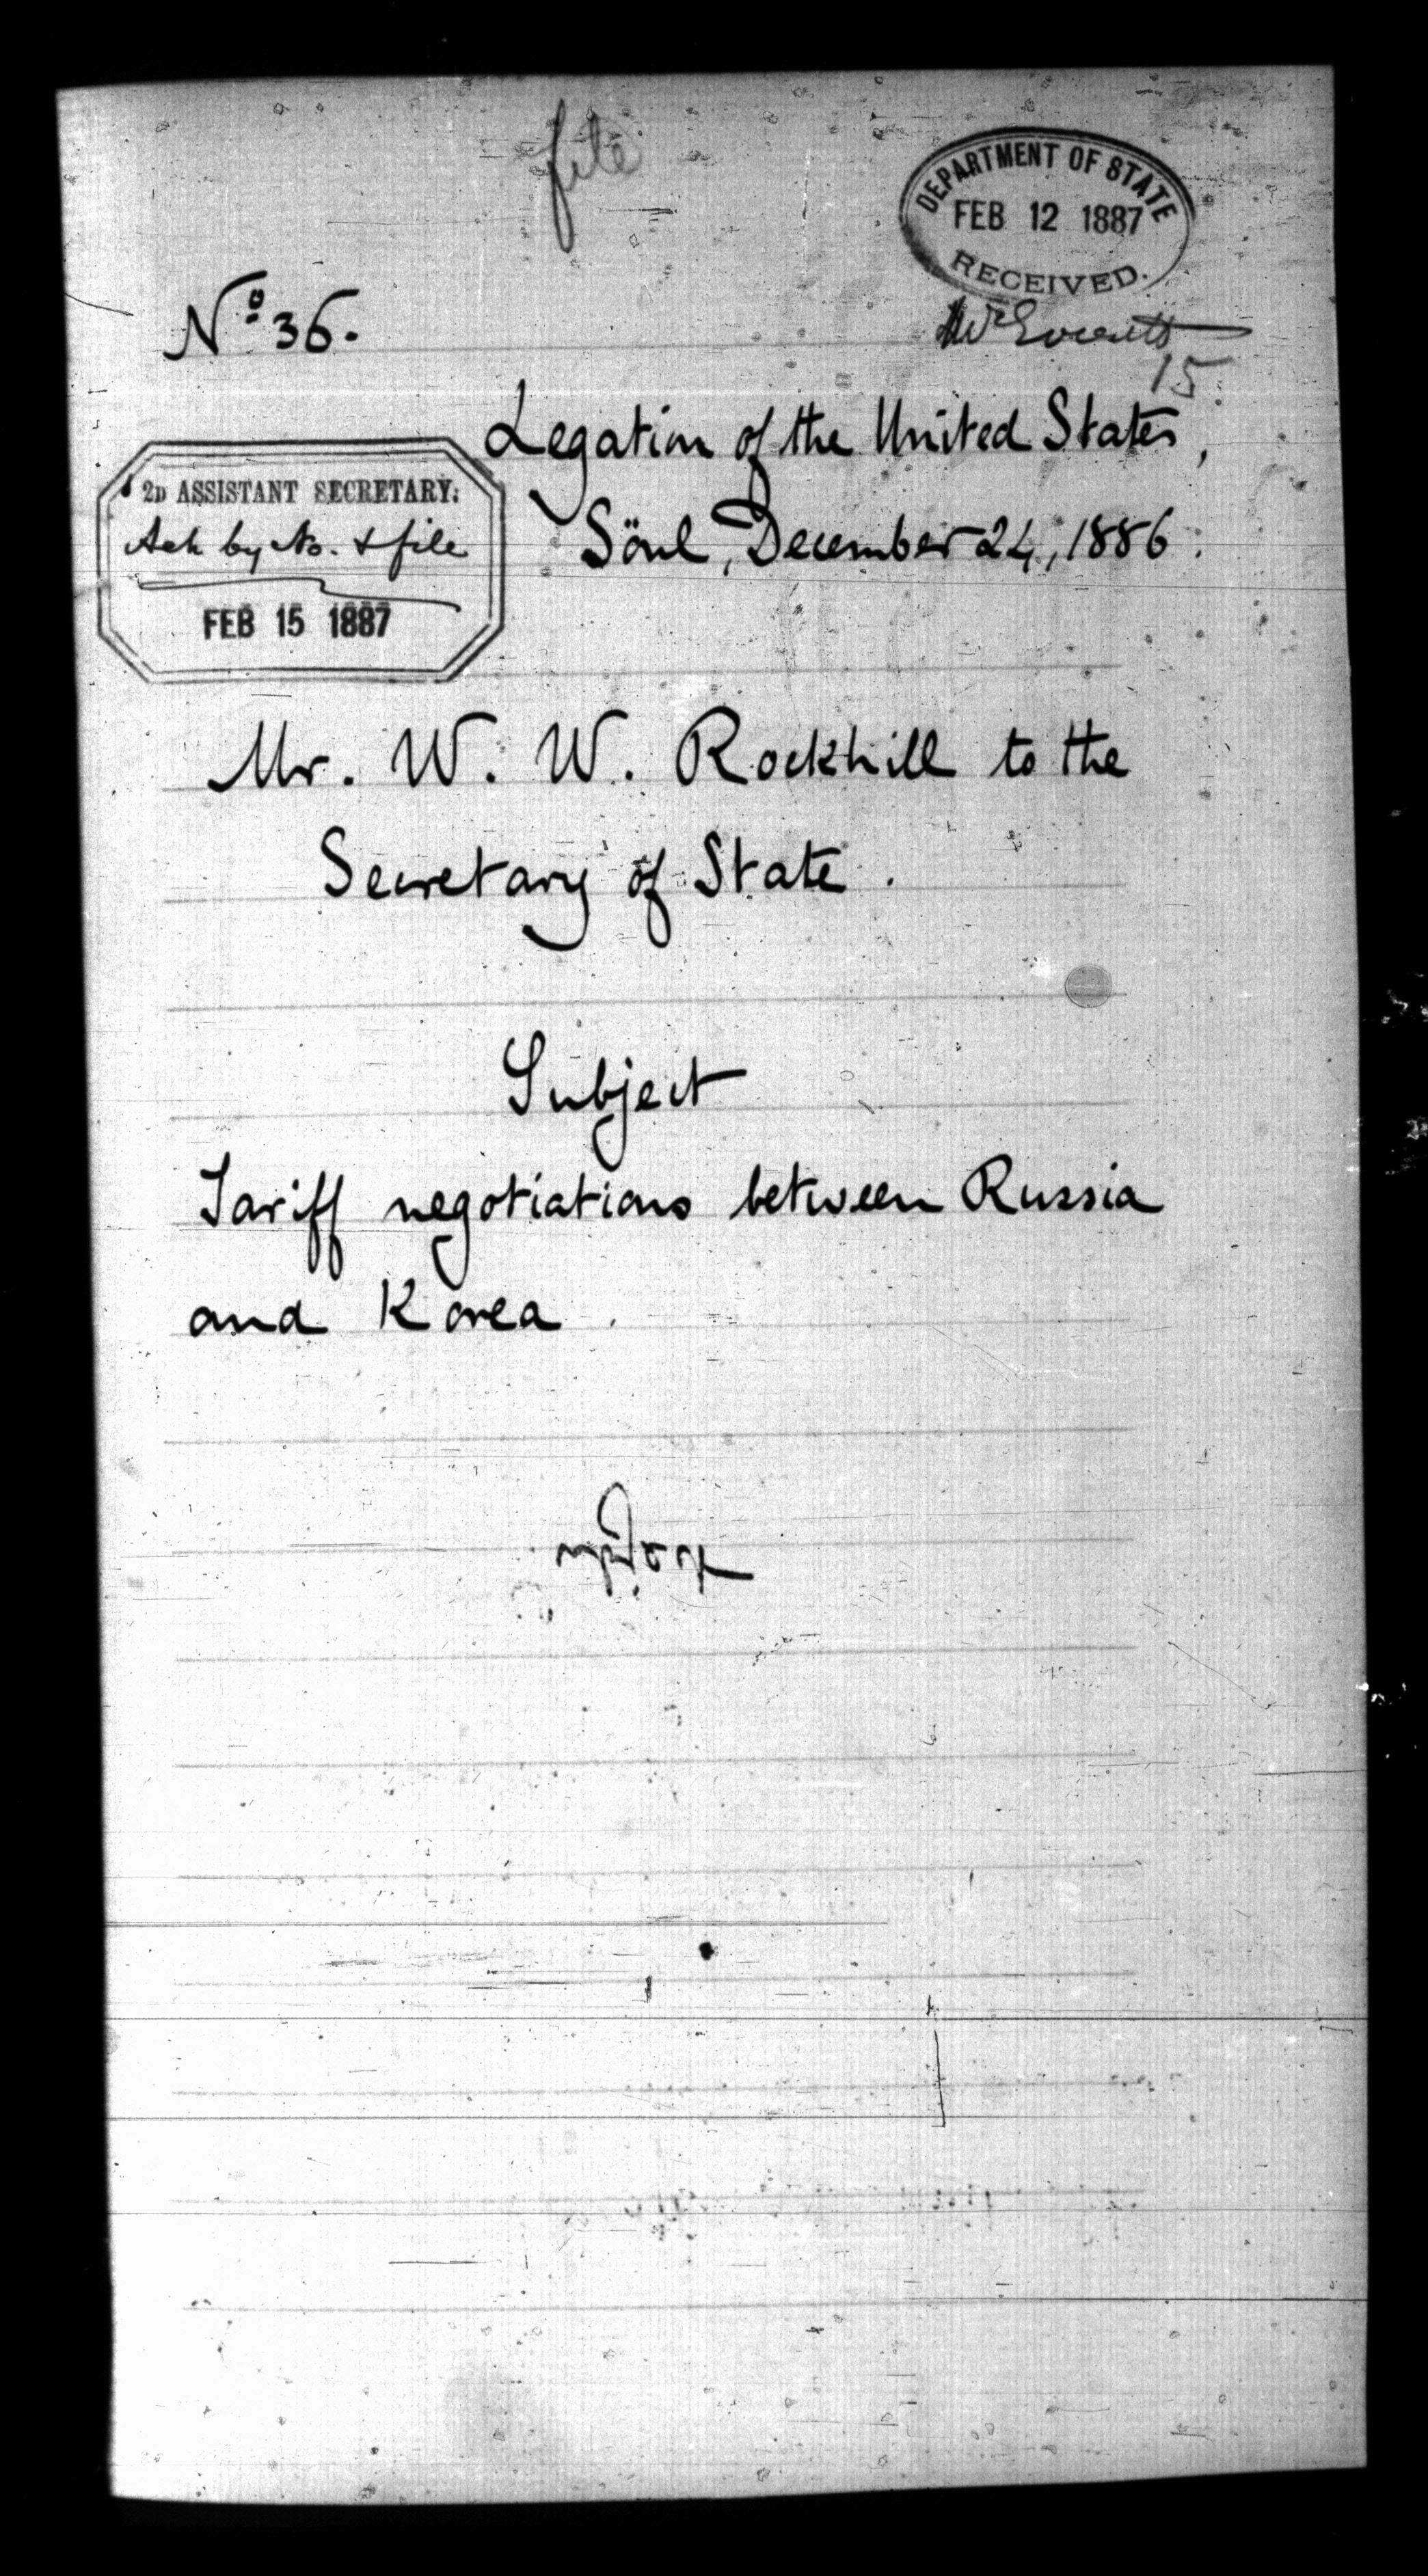 file
DEPARTMENT OF STATE
FEB 12 1887
RECEIVED.
Nº 36.
Mr Everett
15
Legation of the United States,
2D ASSISTANT SECRETARY.
Ack by No. & file
FEB 15 1887
Söul, December 24, 1886.
Mr. W. W. Rockhill to the
Secretary of State.
Subject
Tariff negotiations between Russia
and Korea.